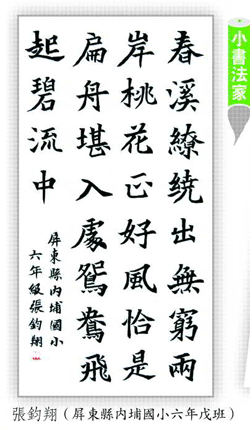 小書法家
春溪繚繞出無窮兩
岸桃花正好風恰是
扁舟堪入處鴛鴦飛
起碧流中
屏東縣內埔國小
六年級張鈞翔
張鈞翔（屏東縣內埔國小六年戊班）